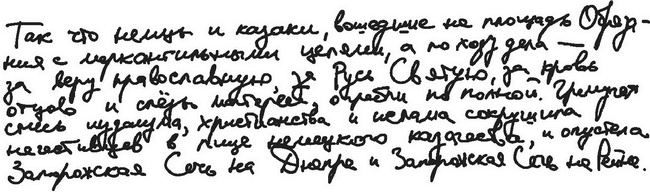 Так что немцы и казаки, вошедшие на площадь Обрезания
с меркантильными целями, а по ходу дела —
за веру православную, за Русь Святую, за кровь
отцов и слёзы матерей, огребли по полной. Гремучая
смесь иудаизма, христианства и ислама сокрушила
нечестивцев в лице немецкого казачества, и опустела
Запорожская Сечь на Днепре и Запорожская Сечь на Рейне.